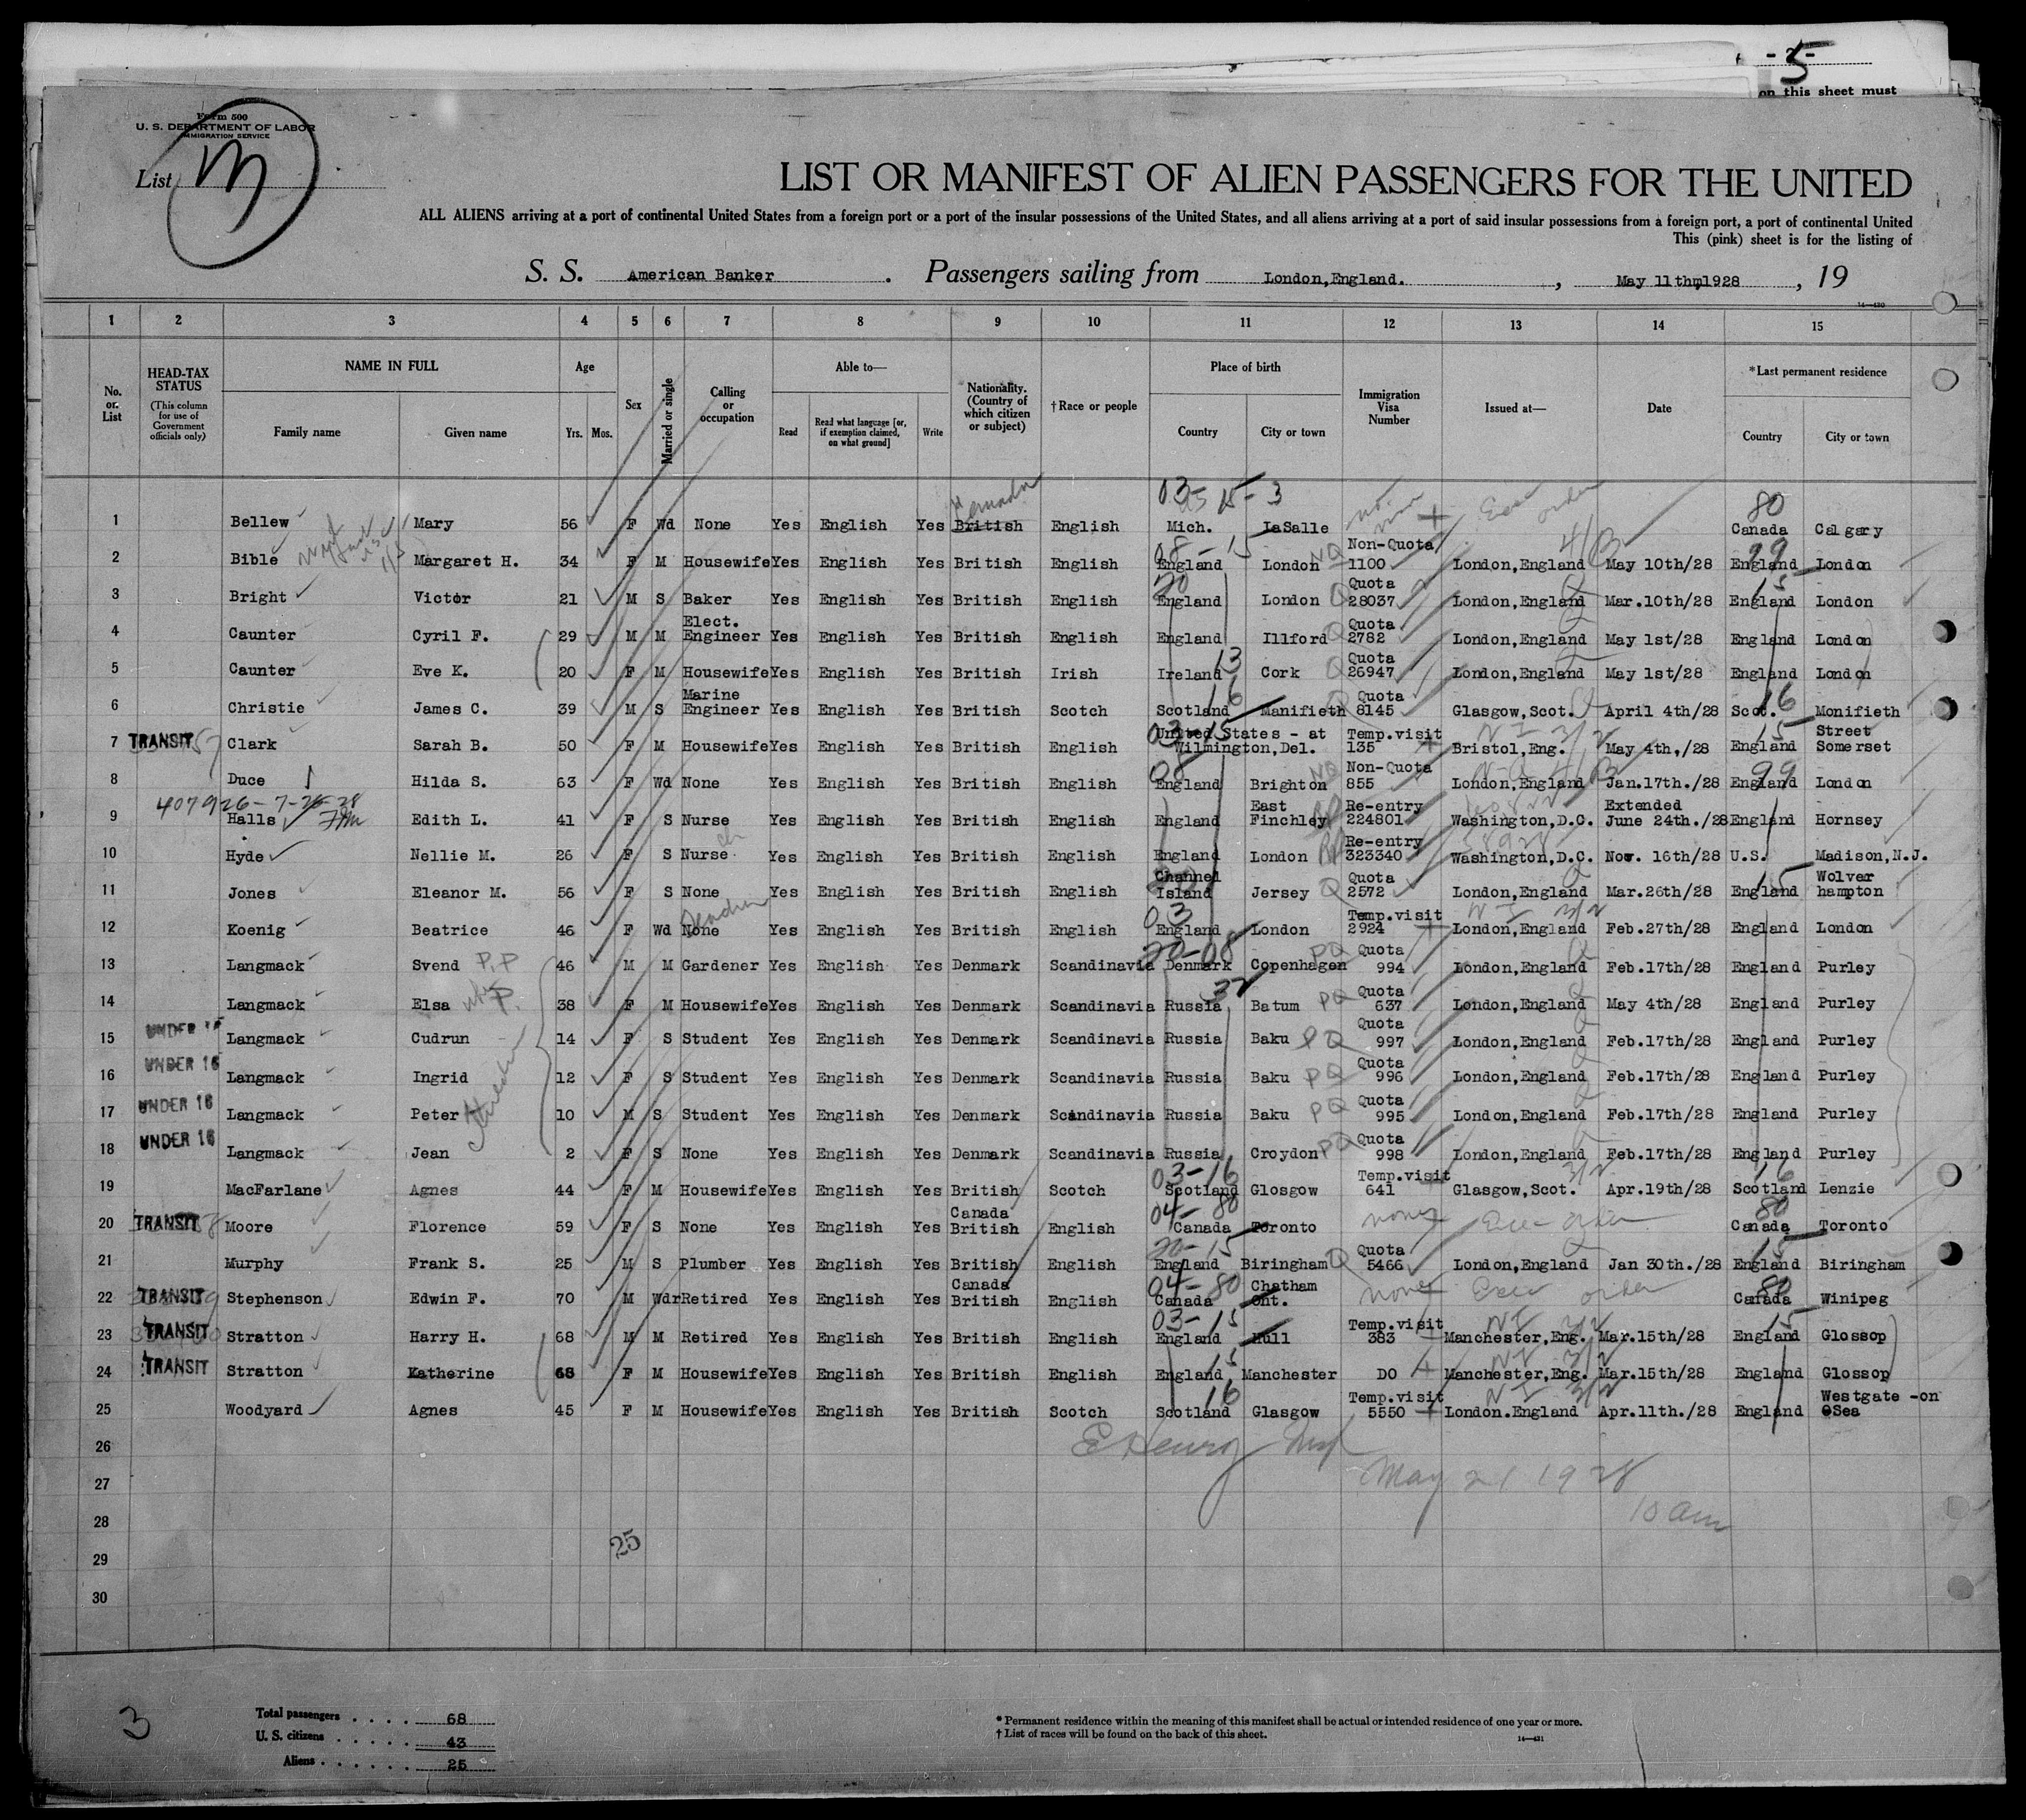 - 5 -
on this sheet must
Form 500
U. S. DEPARTMENT OF LABOR
IMMIGRATION SERVICE
List 3
LIST OR MANIFEST OF ALIEN PASSENGERS FOR THE UNITED
ALL ALIENS arriving at a port of continental United States from a foreign port or a port of the insular possessions of the United States, and all aliens arriving at a port of said insular possessions from a foreign port, a port of continental United
This (pink) sheet is for the listing of
S. S. American Banker . Passengers sailing from London,England. , May 11th,1928 , 19
14—430
1 2 3 4 5 6 7 8 9 10 11 12 13 14 15
No. on List
HEAD-TAX STATUS (This column for use of Government officials only)
NAME IN FULL Family name Given name
Age Yrs. Mos.
Sex
Married or single
Calling or occupation
Able to— Read Read what language [or, if exemption claimed, on what ground] Write
Nationality. (Country of which citizen or subject)
† Race or people
Place of birth Country City or town
Immigration Visa Number
Issued at—
Date
* Last permanent residence Country City or town
03- 15- 3 80
1 Bellew Mary 56 F Wd None Yes English Yes British English Mich. LaSalle Exec order Canada Calgary
2 Bible Margaret H. 34 F M Housewife Yes English Yes British English England London NQ Non-Quota 1100 London,England 4/B May 10th/28 England London
3 Bright Victor 21 M S Baker Yes English Yes British English England London Q Quota 28037 London,England Mar.10th/28 England London
4 Caunter Cyril F. 29 M M Elect. Engineer Yes English Yes British English England Illford Q Quota 2782 London,England May 1st/28 England London
5 Caunter Eve K. 20 F M Housewife Yes English Yes British Irish Ireland 13 Cork Q Quota 26947 London,England May 1st/28 England London
6 Christie James C. 39 M S Marine Engineer Yes English Yes British Scotch Scotland 16 Manifieth Q Quota 8145 Glasgow,Scot. April 4th/28 Scot. 16 Monifieth
7 TRANSIT Clark Sarah B. 50 F M Housewife Yes English Yes British English 03-15 United States - at Wilmington,Del. Temp.visit 135 Bristol,Eng. NI 3/2 May 4th,/28 England 15 Street Somerset
8 Duce Hilda S. 63 F Wd None Yes English Yes British English 08 England Brighton NQ Non-Quota 855 London,England 4/B Jan.17th./28 England 99 London
407926-7-26-28
9 Halls Edith L. 41 F S Nurse Yes English Yes British English England East Finchley Re-entry 224801 Washington,D.C. Extended June 24th./28 England Hornsey
10 Hyde Nellie M. 26 F S Nurse Yes English Yes British English England London Re-entry 323340 Washington,D.C. Nov. 16th/28 U.S. Madison,N.J.
11 Jones Eleanor M. 56 F S None Yes English Yes British English Channel Island Jersey Q Quota 2572 London,England Mar.26th/28 England 15 Wolver hampton
12 Koenig Beatrice 46 F Wd None Yes English Yes British English 03 England London Temp.visit 2924 London,England NI 3/2 Feb.27th/28 England London
13 Langmack Svend P.P 46 M M Gardener Yes English Yes Denmark Scandinavia 20-08 Denmark Copenhagen PQ Quota 994 London,England Feb.17th/28 England Purley
14 Langmack Elsa P. 38 F M Housewife Yes English Yes Denmark Scandinavia Russia 32 Batum PQ Quota 637 London,England May 4th/28 England Purley
15 UNDER 16 Langmack Cudrun 14 F S Student Yes English Yes Denmark Scandinavia Russia Baku PQ Quota 997 London,England Feb.17th/28 England Purley
16 UNDER 16 Langmack Ingrid 12 F S Student Yes English Yes Denmark Scandinavia Russia Baku PQ Quota 996 London,England Feb.17th/28 England Purley
17 UNDER 16 Langmack Peter 10 M S Student Yes English Yes Denmark Scandinavia Russia Baku PQ Quota 995 London,England Feb.17th/28 England Purley
18 UNDER 16 Langmack Jean 2 F S None Yes English Yes Denmark Scandinavia Russia Croydon PQ Quota 998 London,England Feb.17th/28 England Purley
19 MacFarlane Agnes 44 F M Housewife Yes English Yes British Scotch 03-16 Scotland Glosgow Temp.visit 641 Glasgow,Scot. 3/2 Apr.19th/28 16 Scotland Lenzie
20 TRANSIT Moore Florence 59 F S None Yes English Yes Canada British English 04-80 Canada Toronto none Exec order 80 Canada Toronto
21 Murphy Frank S. 25 M S Plumber Yes English Yes British English 20-15 England Biringham Q Quota 5466 London,England Jan 30th./28 15 England Biringham
22 TRANSIT Stephenson Edwin F. 70 M Wdr Retired Yes English Yes Canada British English 04-80 Canada Chatham Ont. none Exec order 80 Canada Winipeg
23 TRANSIT Stratton Harry H. 68 M M Retired Yes English Yes British English 03-15 England Hull Temp.visit 383 Manchester,Eng. NI 3/2 Mar.15th/28 15 England Glossop
24 TRANSIT Stratton Katherine 68 F M Housewife Yes English Yes British English England 15 Manchester DO Manchester,Eng. NI 3/2 Mar.15th/28 England Glossop
25 Woodyard Agnes 45 F M Housewife Yes English Yes British Scotch 16 Scotland Glasgow Temp.visit 5550 London.England NI 3/2 Apr.11th./28 England Westgate -on Sea
26 E Henry
27 May 21 1928
28 10 am
25
29
30
3
Total passengers . . . . 68
U. S. citizens . . . . . 43
Aliens . . . . . . 25
* Permanent residence within the meaning of this manifest shall be actual or intended residence of one year or more.
† List of races will be found on the back of this sheet.
14—431